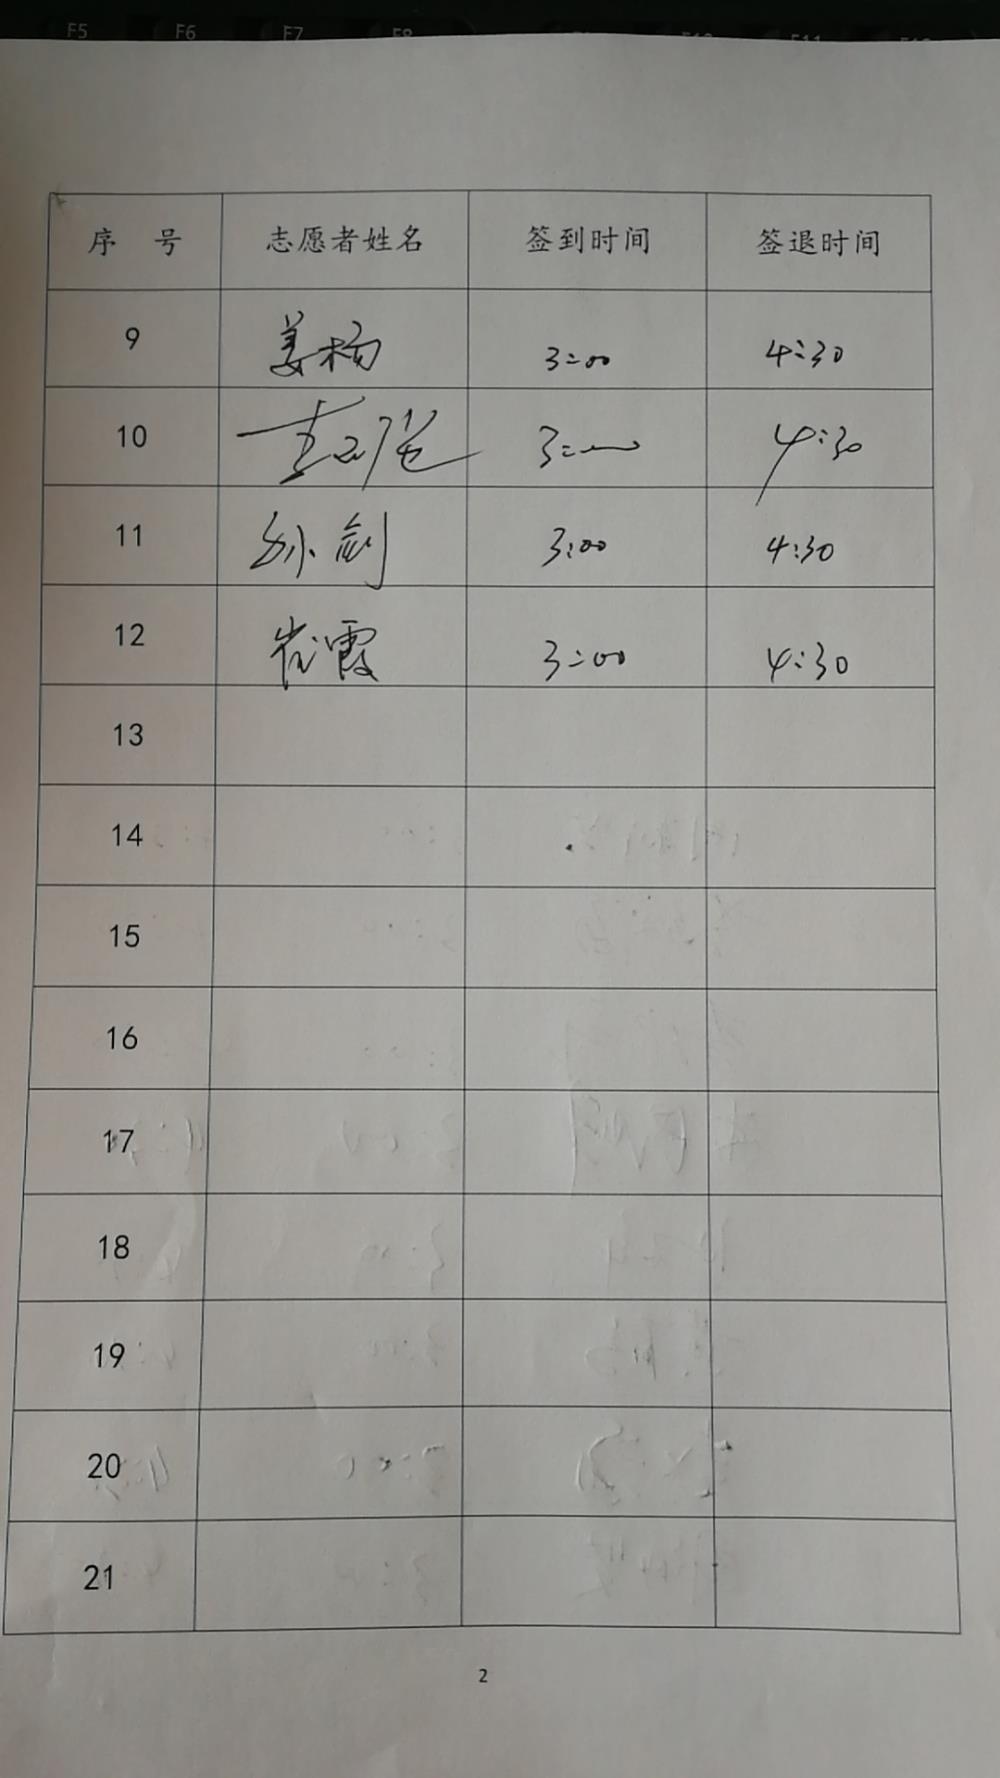 F5 F6 F7 F8 F10 F11
序 号 志愿者姓名 签到时间 签退时间
9 姜杨 3:00 4:30
10 3:00 4:30
11 孙剑 3:00 4:30
12 崔霞 3:00 4:30
13
14
15
16
17
18
19
20
21
2